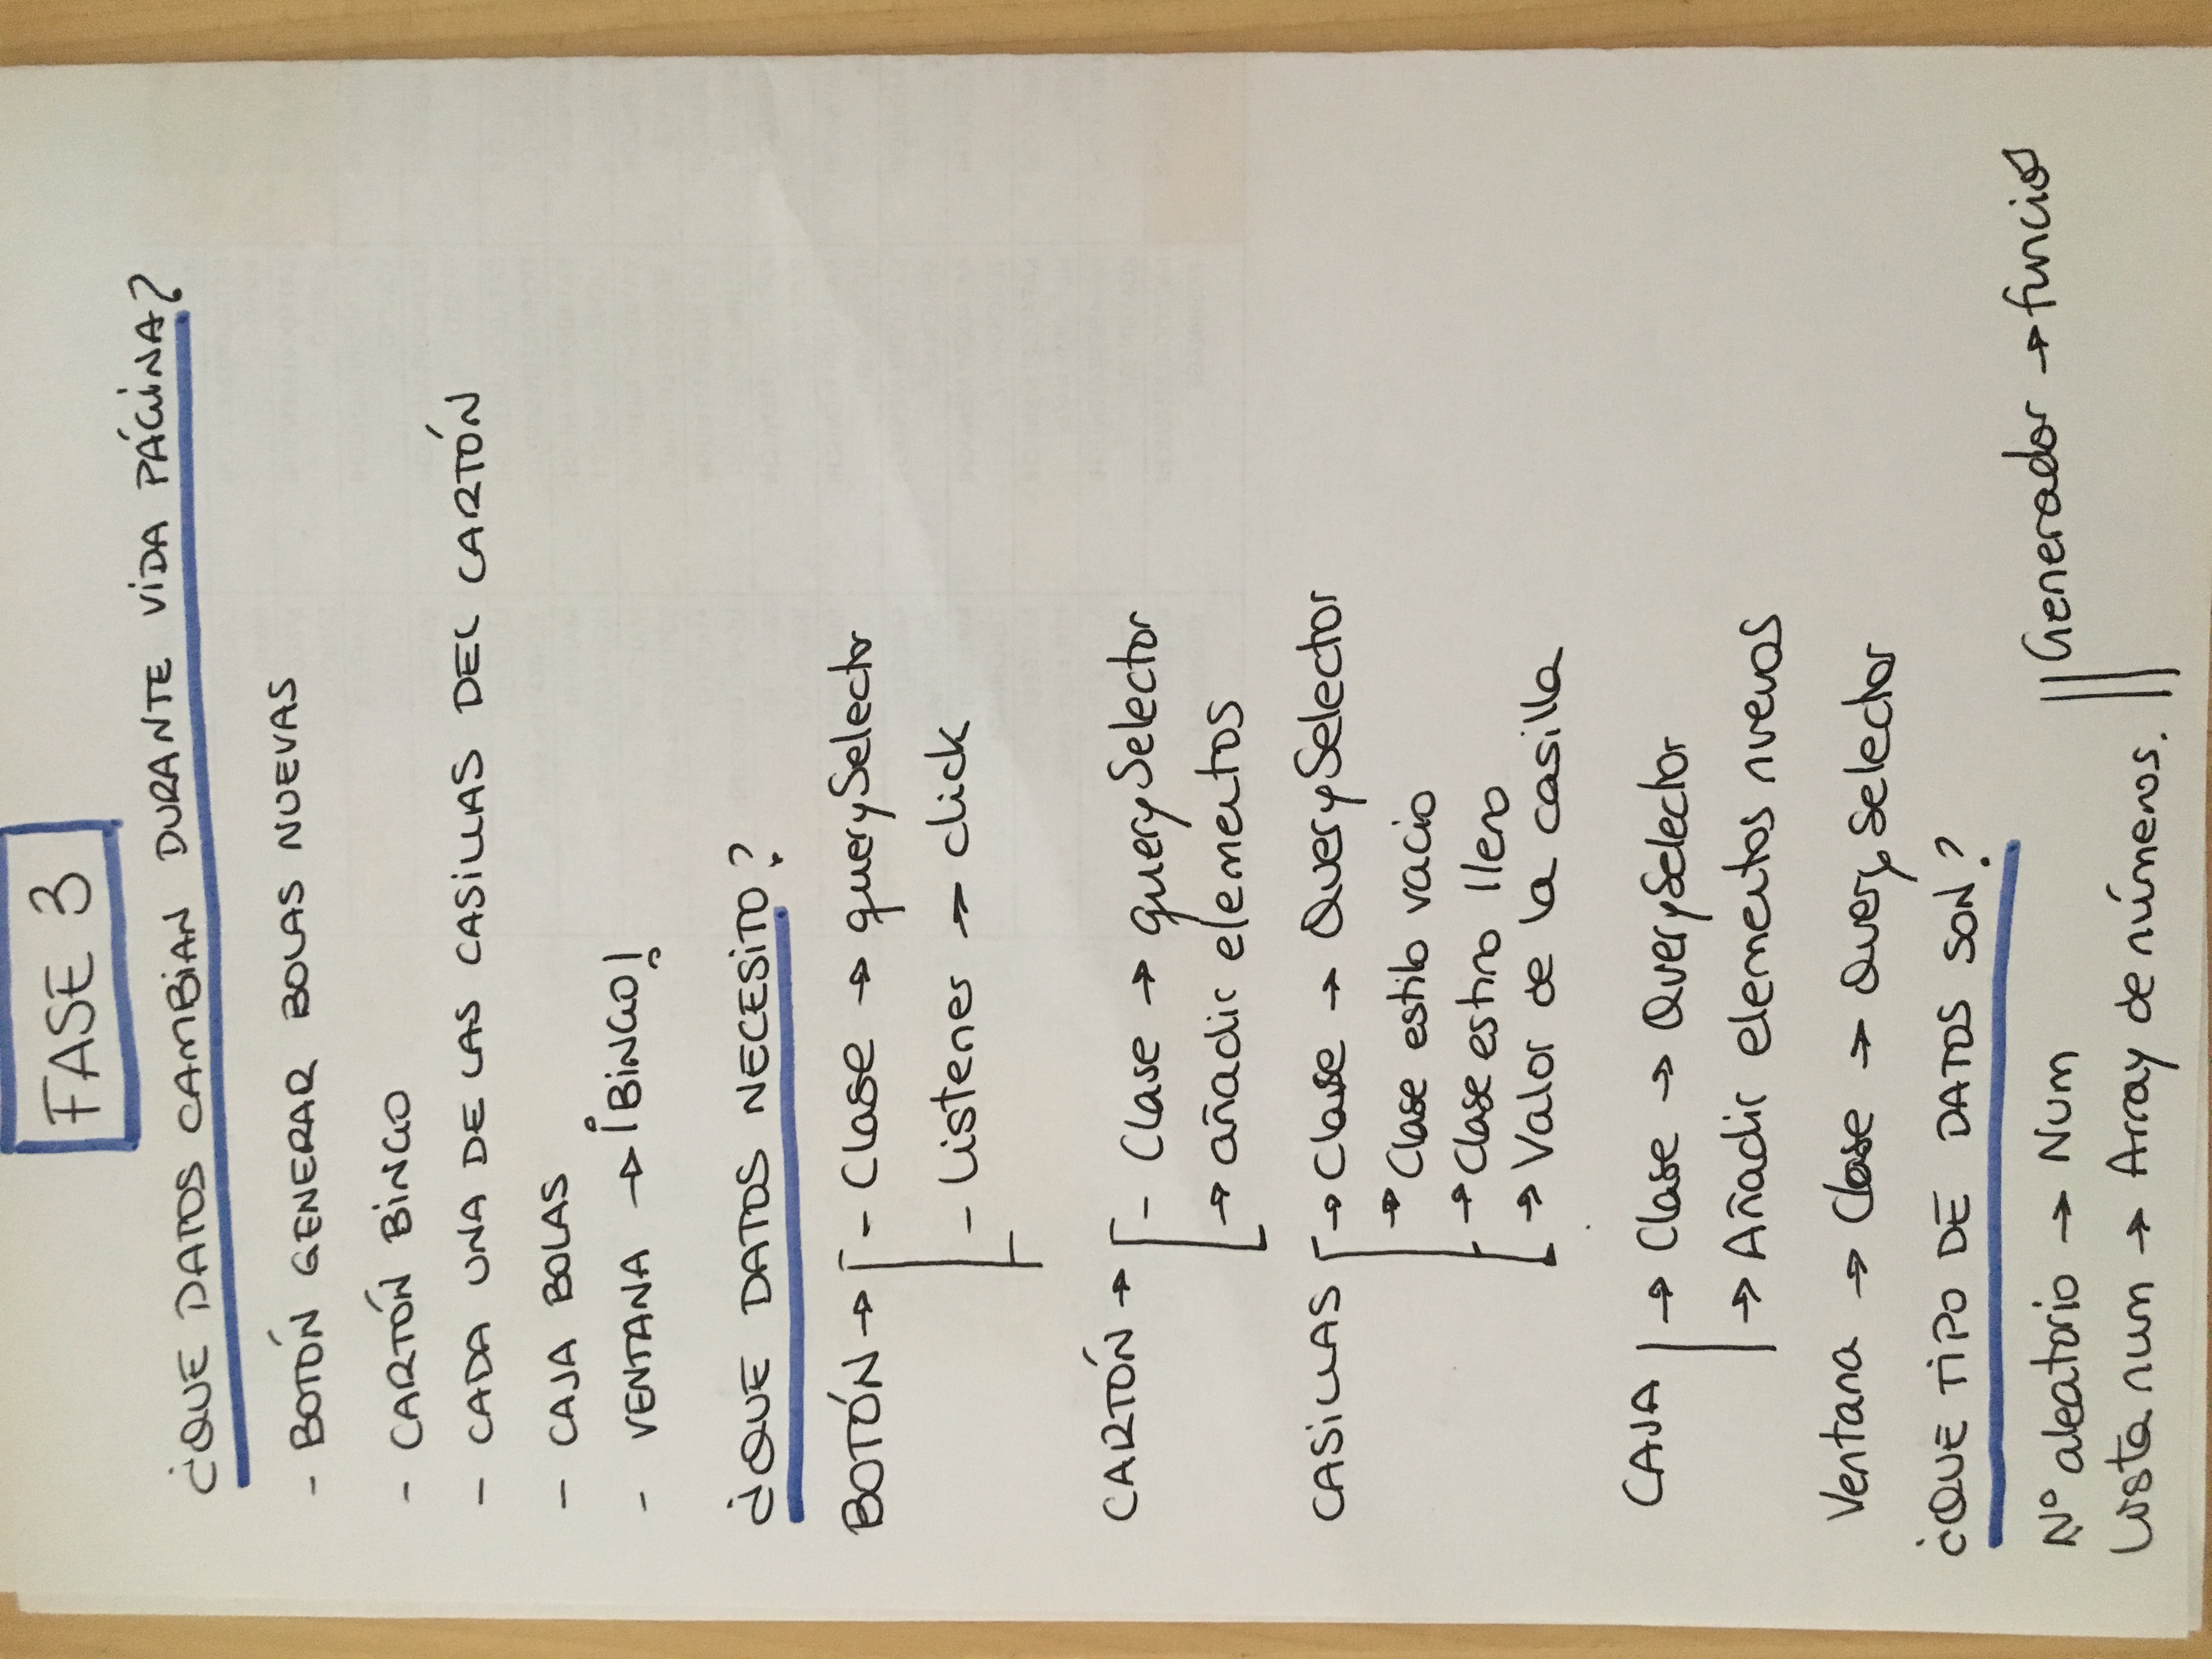 FASE 3
¿QUE DATOS CAMBIAN DURANTE VIDA PÁGINA?
- BOTÓN GENERAR BOLAS NUEVAS
- CARTÓN BINGO
- CADA UNA DE LAS CASILLAS DEL CARTÓN
- CAJA BOLAS
- VENTANA → ¡BINGO!
¿QUE DATOS NECESITO?
BOTÓN → - Clase → querySelector
- Listener → click
CARTÓN → - Clase → querySelector
→ añadir elementos
CASILLAS → Clase → QuerySelector
→ Clase estilo vacio
→ Clase estilo lleno
→ Valor de la casilla
CAJA → Clase → QuerySelector
→ Añadir elementos nuevos
Ventana → Clase → Query Selector
¿QUE TIPO DE DATOS SON?
Nº aleatorio → Num
Lista num → Array de números.
Generador → función